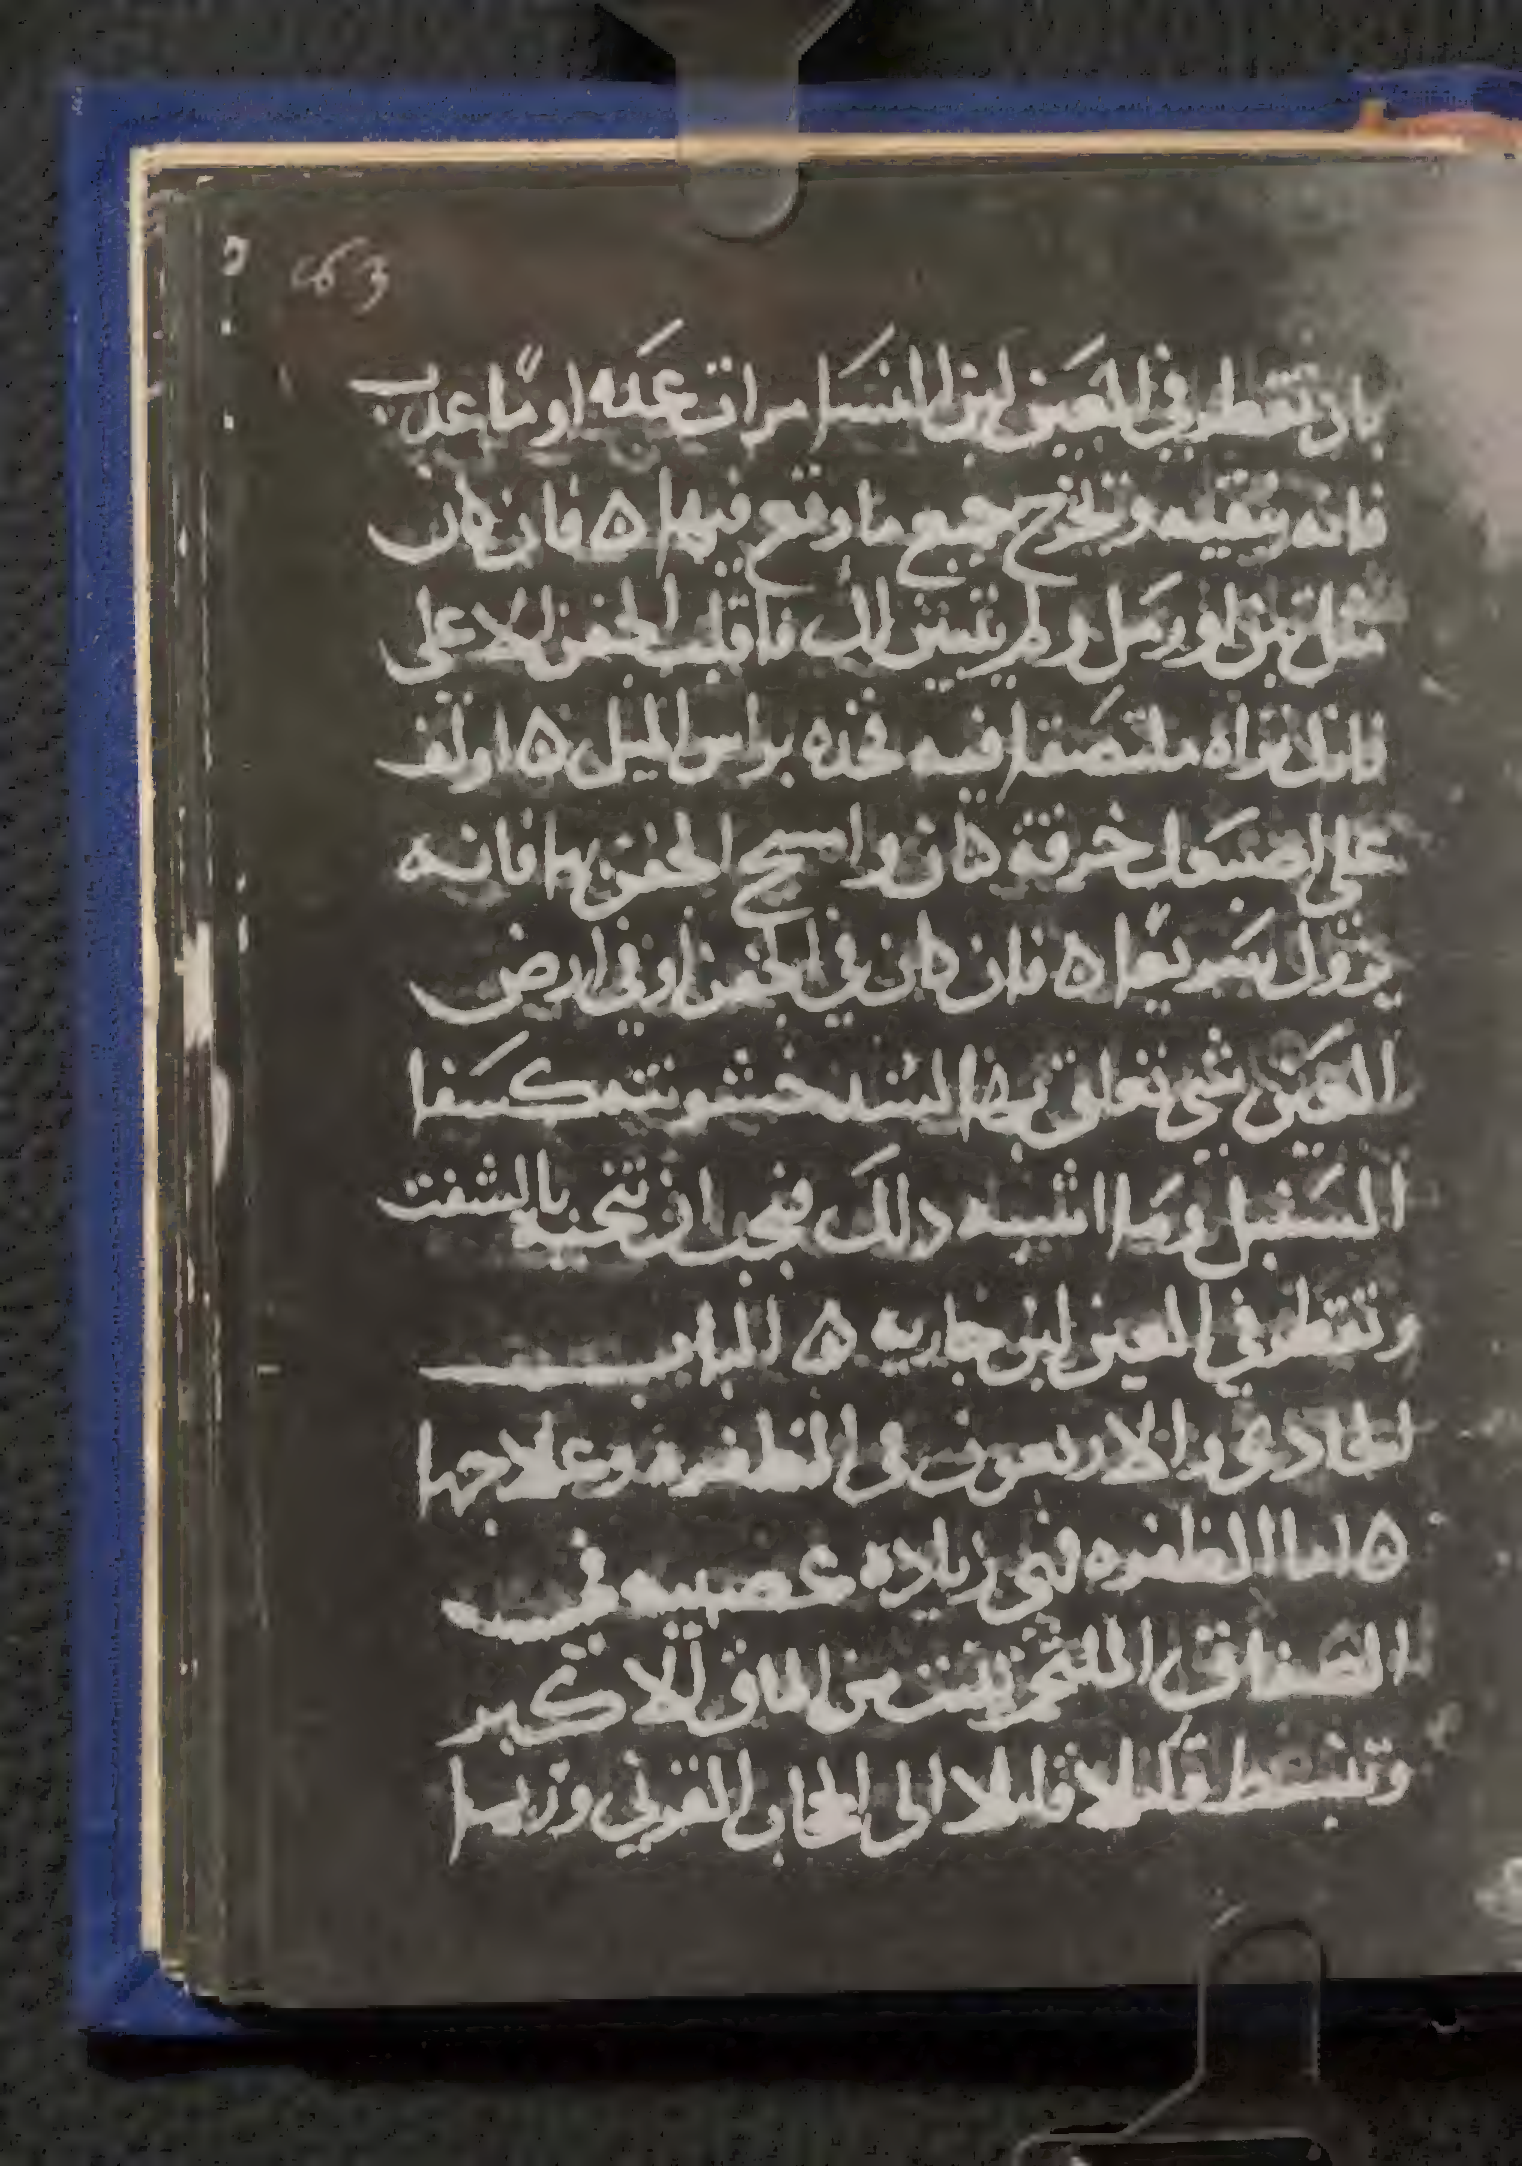 بان تقطر في العين لبن النسا مرات عده او ما عذب
فانه ينقيه ويخرج جميع ما وقع فيها ه فان كان
مثل تبن او رمل ولم يتبين لك فاقلب الجفن الاعلى
فانك تراه ملتصقا فيه فخذه براس الميل ه او لف
على اصبعك خرقة كتان وامسح الجفن بها فانه
يزول سريعا ه فان كان في الجفن او في ارض
العين شي تعلق بها لشده خشونته كسفا
السنبل وما اشبه ذلك فيجب ان تنحيه بالشفت
وتقطر في العين لبن جاريه ه الباب
الحادي والاربعون في الظفره وعلاجها
ه اما الظفره فهي زياده عصبيه في
الصفاق الملتحم ينبت من الماق الاكبر
وتنبسط قليلا قليلا الى الحجاب القرني وربما